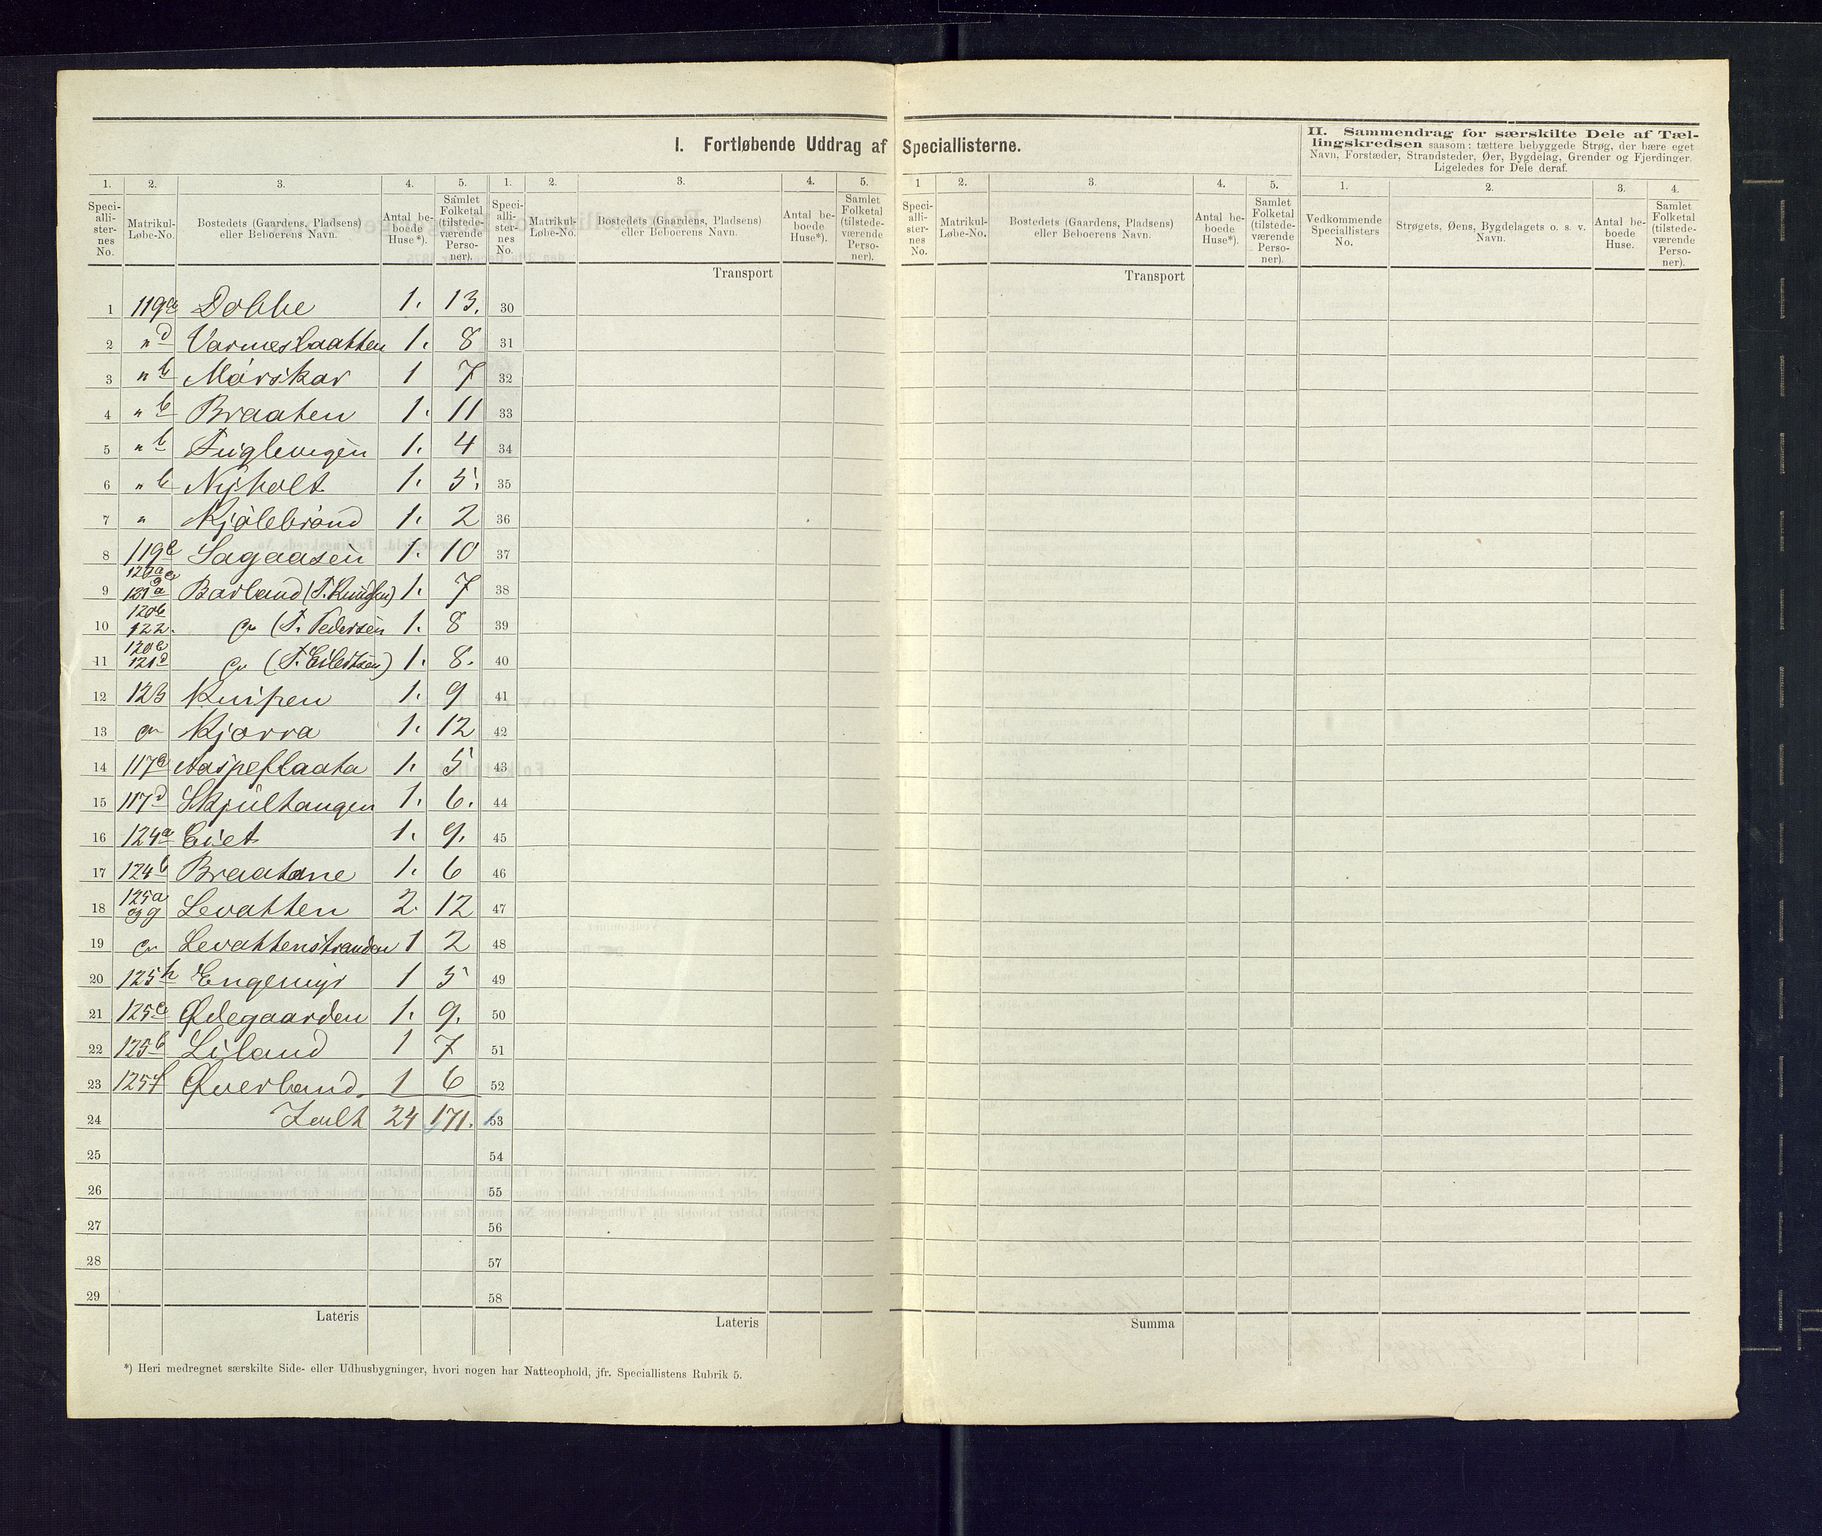 I. Fortløbende Uddrag af Speciallisterne.
II. Sammendrag for særskilte Dele af Tæl-
lingskredsen saasom: tættere bebyggede Strøg, der bære eget
Navn, Forstæder, Strandsteder, Øer, Bygdelag, Grender og Fjerdinger.
Ligeledes for Dele deraf.
1. 2. 3. 4. 5. 1. 2. 3. 4. 5. 1 2. 3. 4. 5. 1. 2. 3. 4.
Speci-alli-ster-nes No. Matrikul-Løbe-No. Bostedets (Gaardens, Pladsens) eller Beboerens Navn. Antal be-boede Huse*). Samlet Folketal (tilstede-værende Perso-ner).
Speci-alli-ster-nes No. Matrikul-Løbe-No. Bostedets (Gaardens, Pladsens) eller Beboerens Navn. Antal be-boede Huse*). Samlet Folketal (tilstede-værende Perso-ner).
Speci-alli-ster-nes No. Matrikul-Løbe-No. Bostedets (Gaardens, Pladsens) eller Beboerens Navn. Antal be-boede Huse*). Samlet Folketal (tilstede-værende Perso-ner).
Vedkommende Speciallisters No. Strøgets, Øens, Bygdelagets o. s. v. Navn. Antal be-boede Huse. Samlet Folketal (tilstede-værende Perso-ner).
Transport Transport
1 119a Dobbe 1. 13. 30
2 " d Varmeslaatten 1. 8 31
3 " b Mörskar 1 7 32
4 " b Braaten 1. 11 33
5 " b Fuglevigen 1. 4 34
6 " b Nyholt 1. 5. 35
7 " Kjölebrönd 1. 2 36
8 119c Sagaasen 1. 10 37
9 121a Barland (T. Knudsen) 1. 7 38
10 120b 122. " (T. Pedersen 1. 8 39
11 120c 121d " (T. Eilertsen) 1. 8. 40
12 123 Knipen 1. 9 41
13 " Kjorra 1. 12 42
14 117a Aaspeflaata 1. 5 43
15 117d Skjultangen 1. 6. 44
16 124a Eiet 1. 9. 45
17 124b Braatane 1. 6 46
18 125a og g Levatten 2. 12 47
19 " Levattenstranden 1 2 48
20 125h Engemyr 1 5 49
21 125c Ødegaarden 1. 9. 50
22 125b Liland 1 7 51
23 125f Øverland 1 6 52
24 Ialt 24 171. 53
25 54
26 55
27 56
28 57
29 58
Lateris Lateris Summa
*) Heri medregnet særskilte Side- eller Udhusbygninger, hvori nogen har Natteophold, jfr. Speciallistens Rubrik 5.